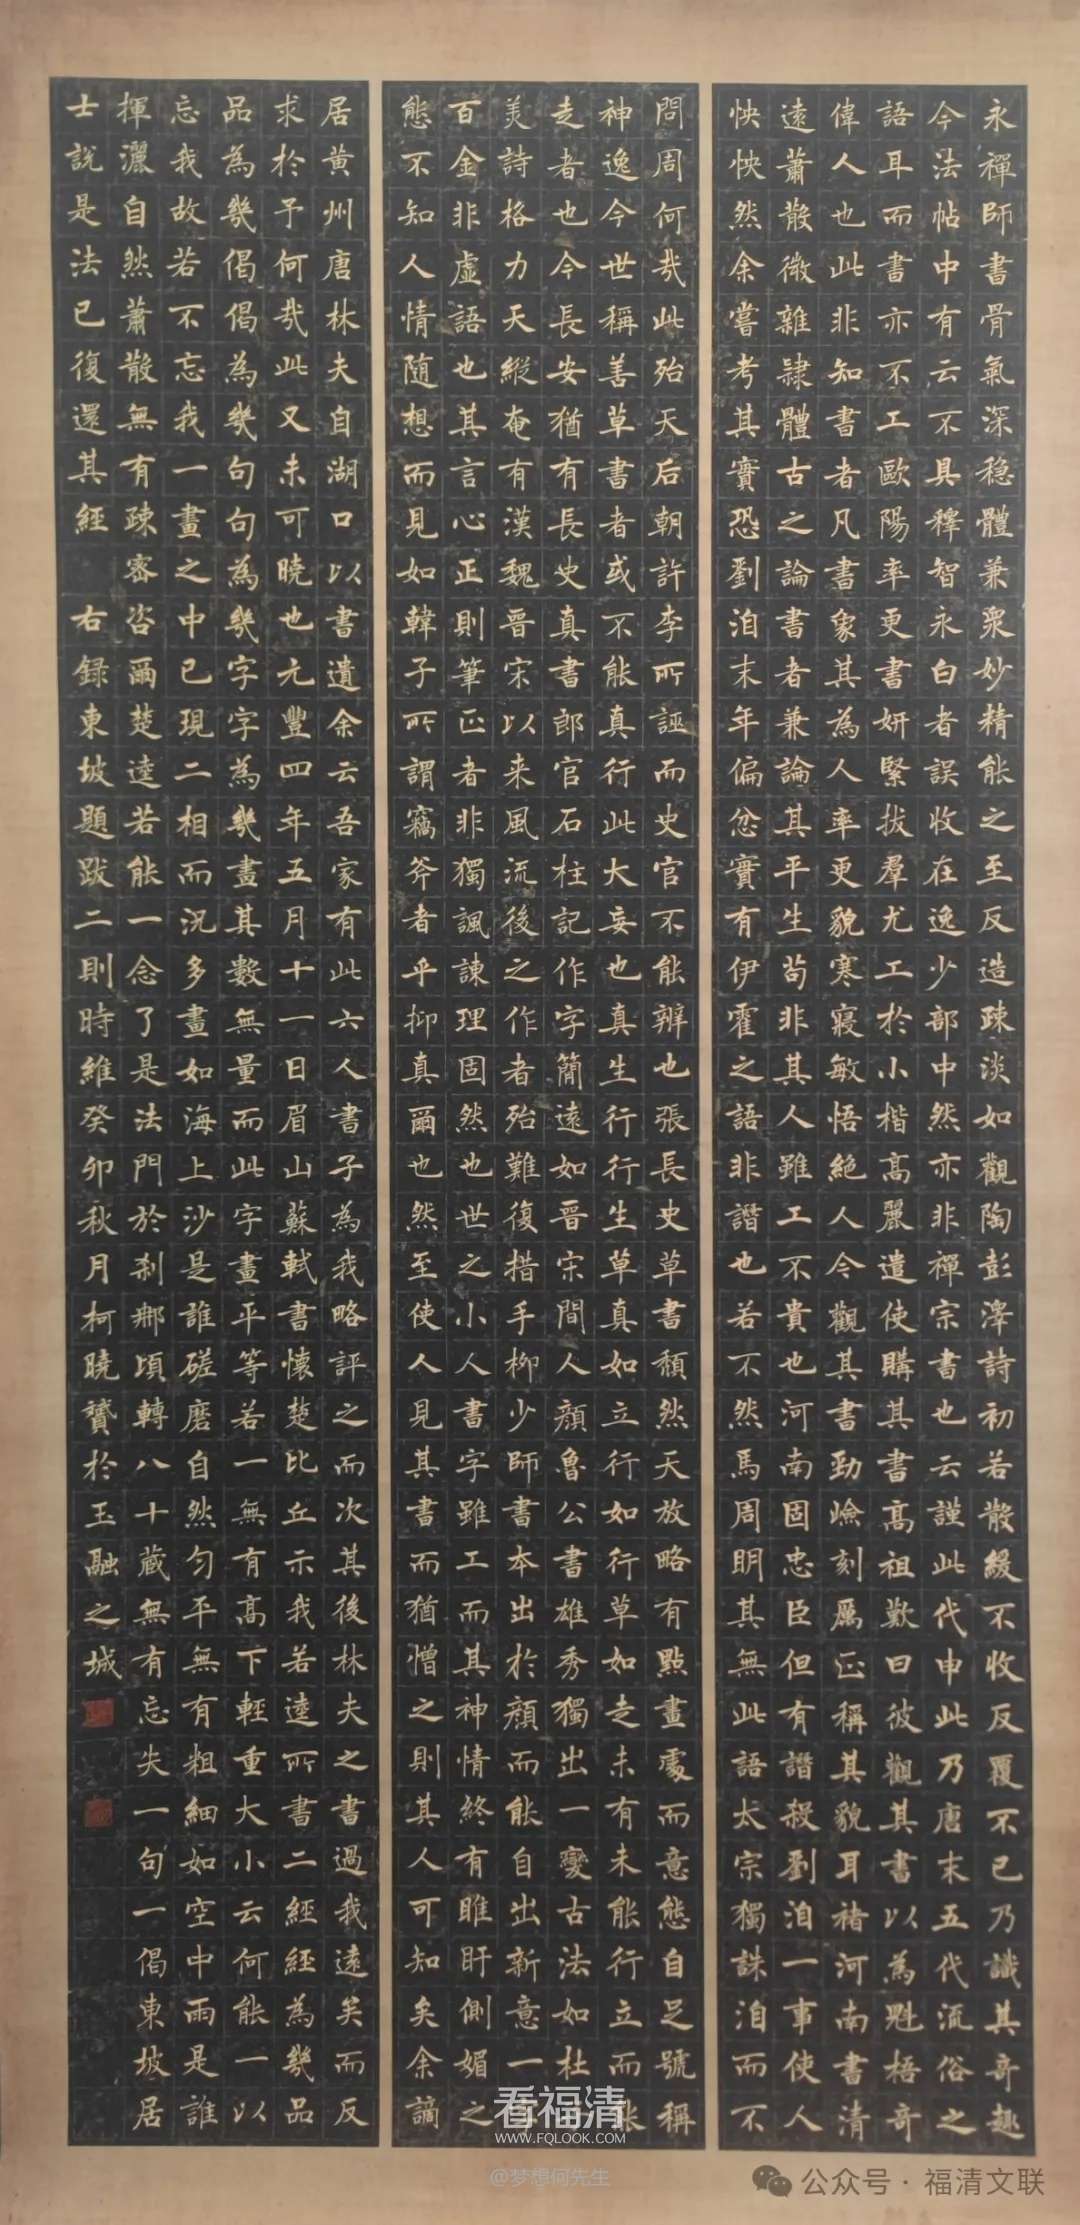 永禪師書骨氣深穩體兼衆妙精能之至反造疎淡如觀陶彭澤詩初若散緩不收反覆不已乃識其奇趣
今法帖中有云不具釋智永白者誤收在逸少部中然亦非禪宗書也云謹此代申此乃唐末五代流俗之
語耳而書亦不工歐陽率更書妍緊拔羣尤工於小楷高麗遣使購其書高祖歎曰彼觀其書以為魁梧奇
偉人也此非知書者凡書象其為人率更貌寒寢敏悟絕人今觀其書勁嶮刻厲正稱其貌耳褚河南書清
遠蕭散微雜隸體古之論書者兼論其平生苟非其人雖工不貴也河南固忠臣但有譖殺劉洎一事使人
怏怏然余嘗考其實恐劉洎末年偏忿實有伊霍之語非譖也若不然馬周明其無此語太宗獨誅洎而不
問周何哉此殆天后朝許李所誣而史官不能辨也張長史草書頹然天放略有點畫處而意態自足號稱
神逸今世稱善草書者或不能真行此大妄也真生行行生草真如立行如行草如走未有未能行立而能
走者也今長安猶有長史真書郎官石柱記作字簡遠如晉宋間人顏魯公書雄秀獨出一變古法如杜
美詩格力天縱奄有漢魏晉宋以来風流後之作者殆難復措手柳少師書本出於顏而能自出新意一
百金非虛語也其言心正則筆正者非獨諷諫理固然也世之小人書字雖工而其神情終有睢盱側媚之
態不知人情随想而見如韓子所謂竊斧者乎抑真爾也然至使人見其書而猶憎之則其人可知矣余謫
居黄州唐林夫自湖口以書遺余云吾家有此六人書子為我略評之而次其後林夫之書過我遠矣而反
求於予何哉此又未可曉也元豐四年五月十一日眉山蘇軾書懷楚比丘示我若逵所書二經經為幾品
品為幾偈偈為幾句句為幾字字為幾畫其數無量而此字畫平等若一無有高下輕重大小云何能一以
忘我故若不忘我一畫之中已現二相而況多畫如海上沙是誰磋磨自然勻平無有粗細如空中雨是誰
揮灑自然蕭散無有疎密咨爾楚逵若能一念了是法門於剎那頃轉八十藏無有忘失一句一偈東坡居
士說是法已復還其經 右録東坡題跋二則時維癸卯秋月柯曉贇於玉融之城
看福清
WWW.FQLOOK.COM
@梦想何先生
公众号·福清文联